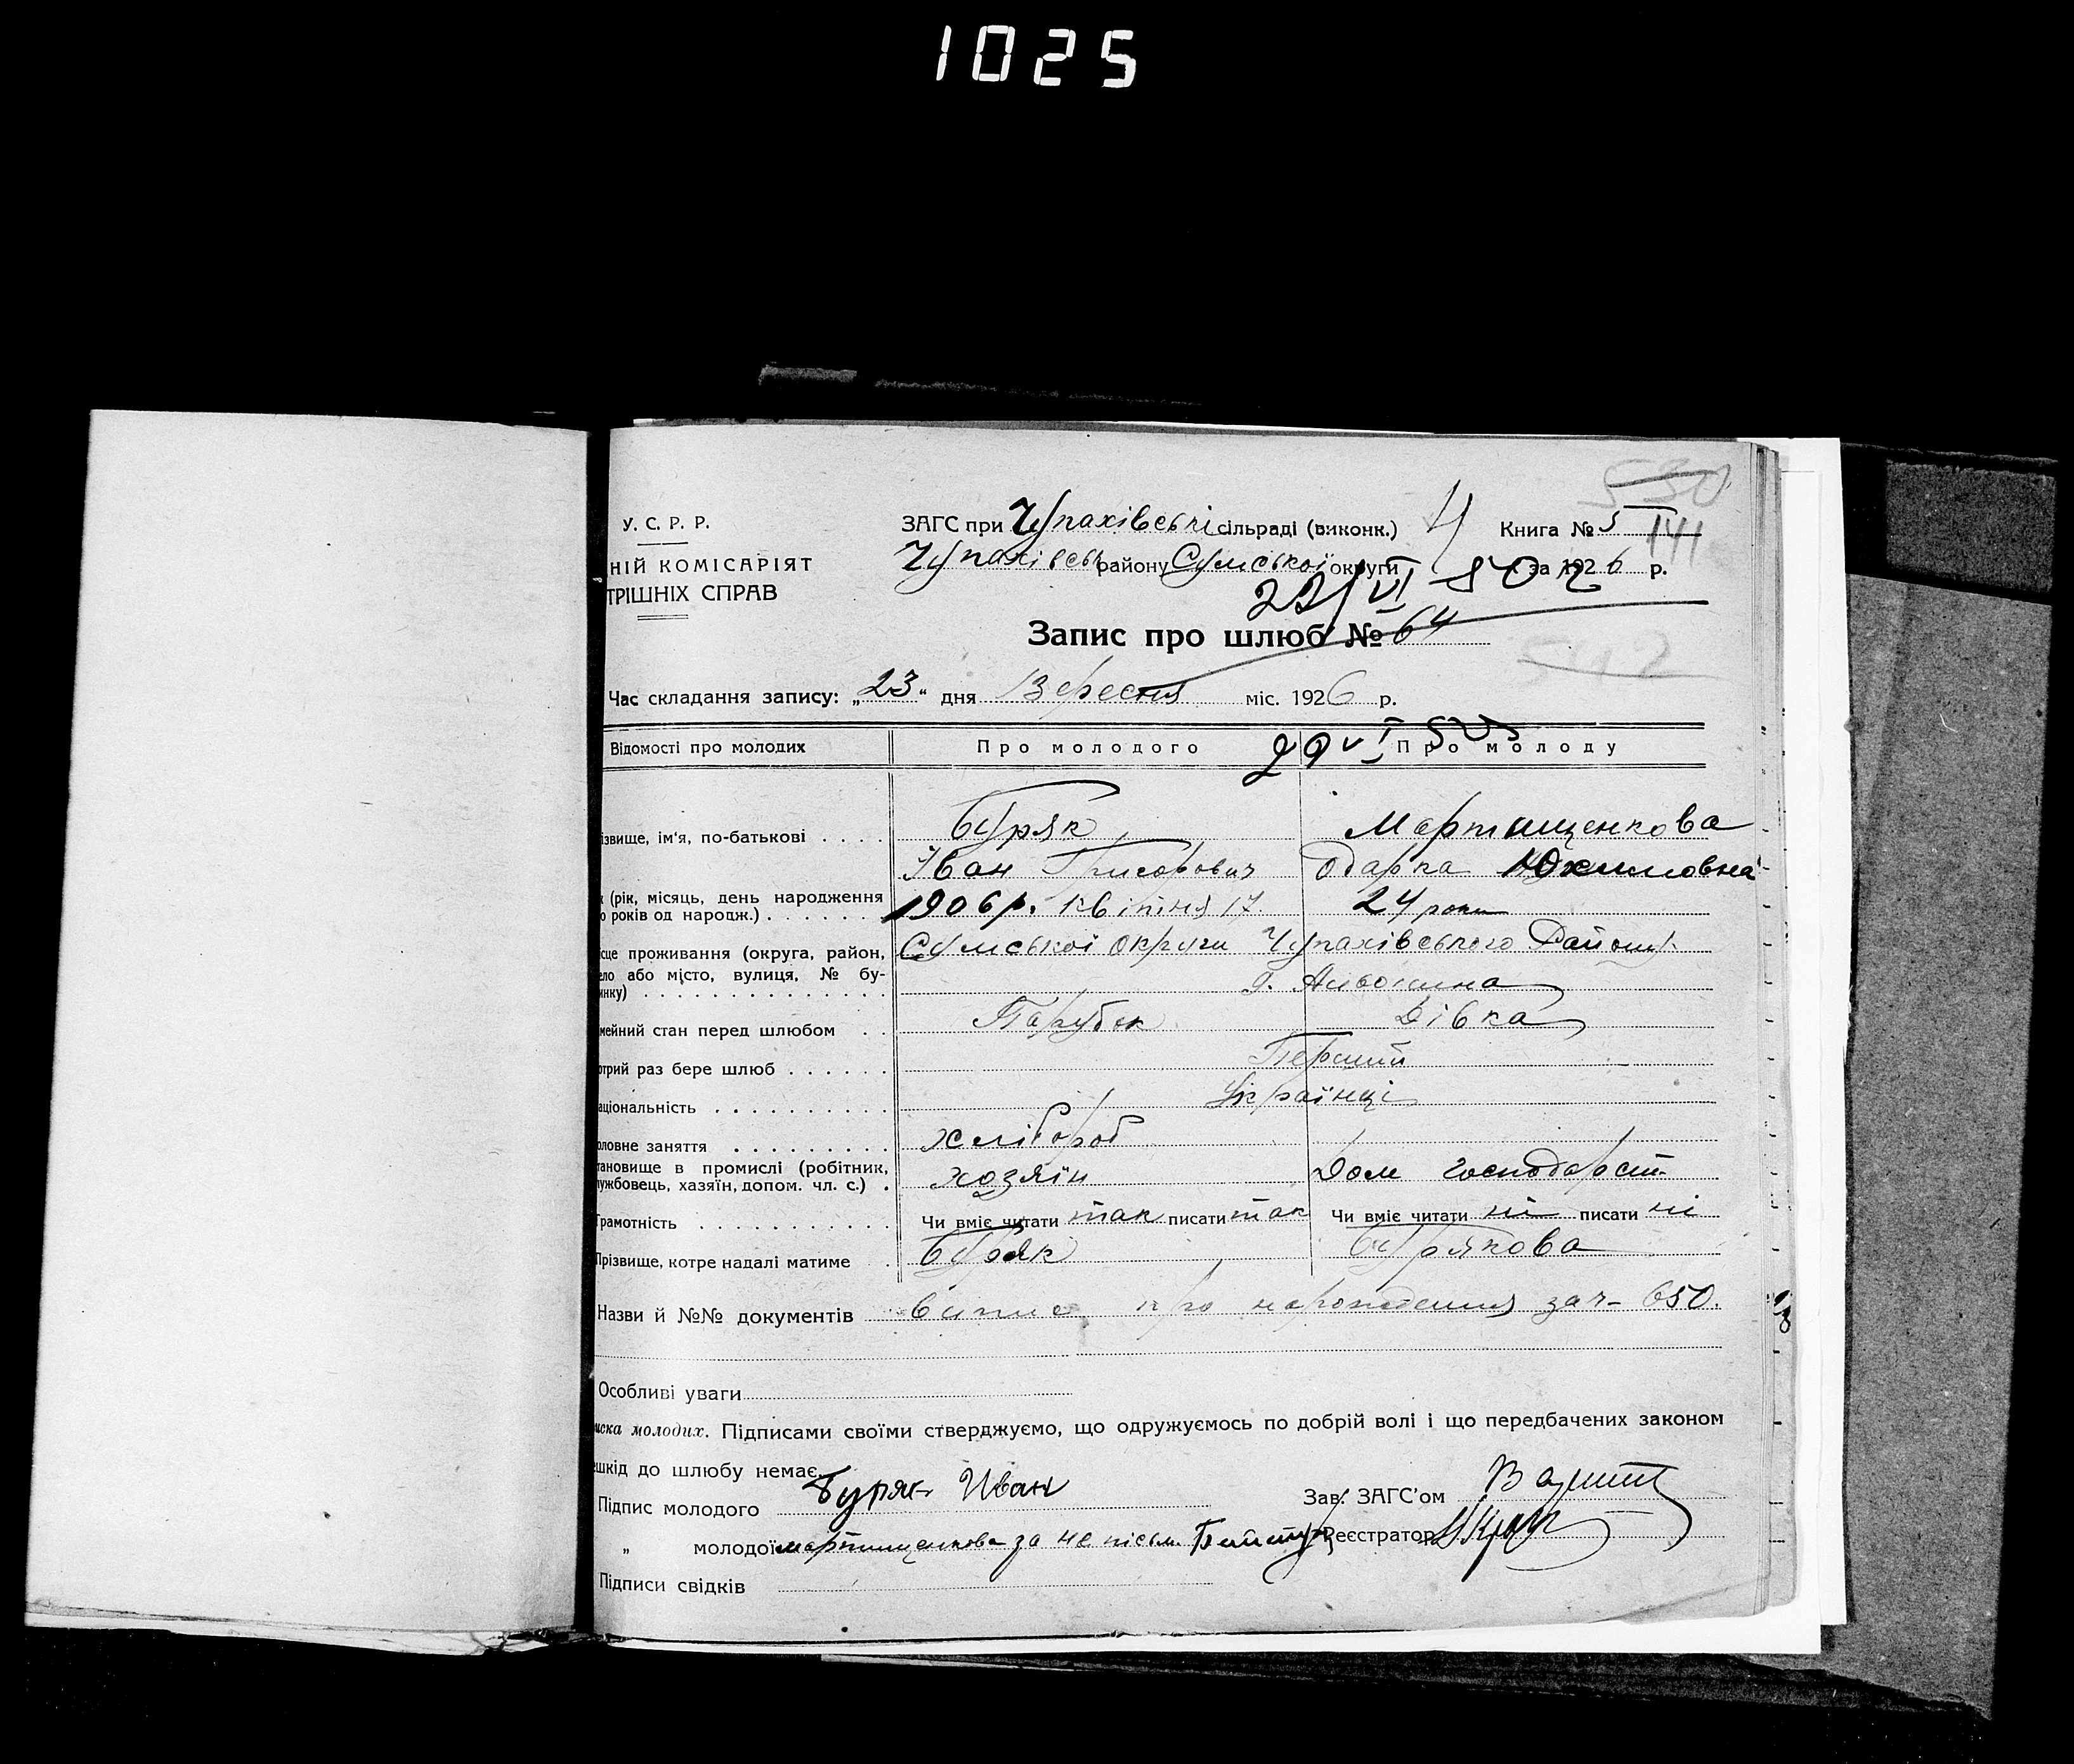 1025
530
У. С. Р. Р.
ЗАГС при Чупахівські сільраді (виконк.) Книга № 5
141
НІЙ КОМІСАРІЯТ
Чупахівськ району Сумської округи за 1926 р.
ТРІШНІХ СПРАВ
22/VI 502
Запис про шлюб № 64
542
Час складання запису: „23“ дня Вересня міс. 1926 р.
Відомості про молодих Про молодого Про молоду
ізвище, ім'я, по-батькові . . . . Буряк, Мартищенкова
Іван Григорович Одарка Юхимовна
(рік, місяць, день народження
о років од народж.) . . . . . . . 1906 р. квітня 17. 24 роки
сце проживання (округа, район, Сумської округи Чупахівського Району
ело або місто, вулиця, № бу-
инку) . . . . . . . . . . . . . .
мейний стан перед шлюбом . . Парубок Дівка
отрий раз бере шлюб . . . . . . Перший
аціональність . . . . . . . . . . Українці
оловне заняття . . . . . . . . . Хлібороб
тановище в промислі (робітник,
ужбовець, хазяїн, допом. чл. с.) . хозяїн Дом господарст.
Грамотність . . . . . . . . . . . Чи вміє читати так писати так Чи вміє читати ні писати ні
Прізвище, котре надалі матиме . Буряк Бурякова
Назви й №№ документів випис про народження зач- 650.
Особливі уваги
иска молодих. Підписами своїми стверджуємо, що одружуємось по добрій волі і що передбачених законом
ешкід до шлюбу немає.
Підпис молодого Буряк Иван Зав. ЗАГС'ом
„ молодої мартищенкова за не письм. Реєстратор
Підписи свідків